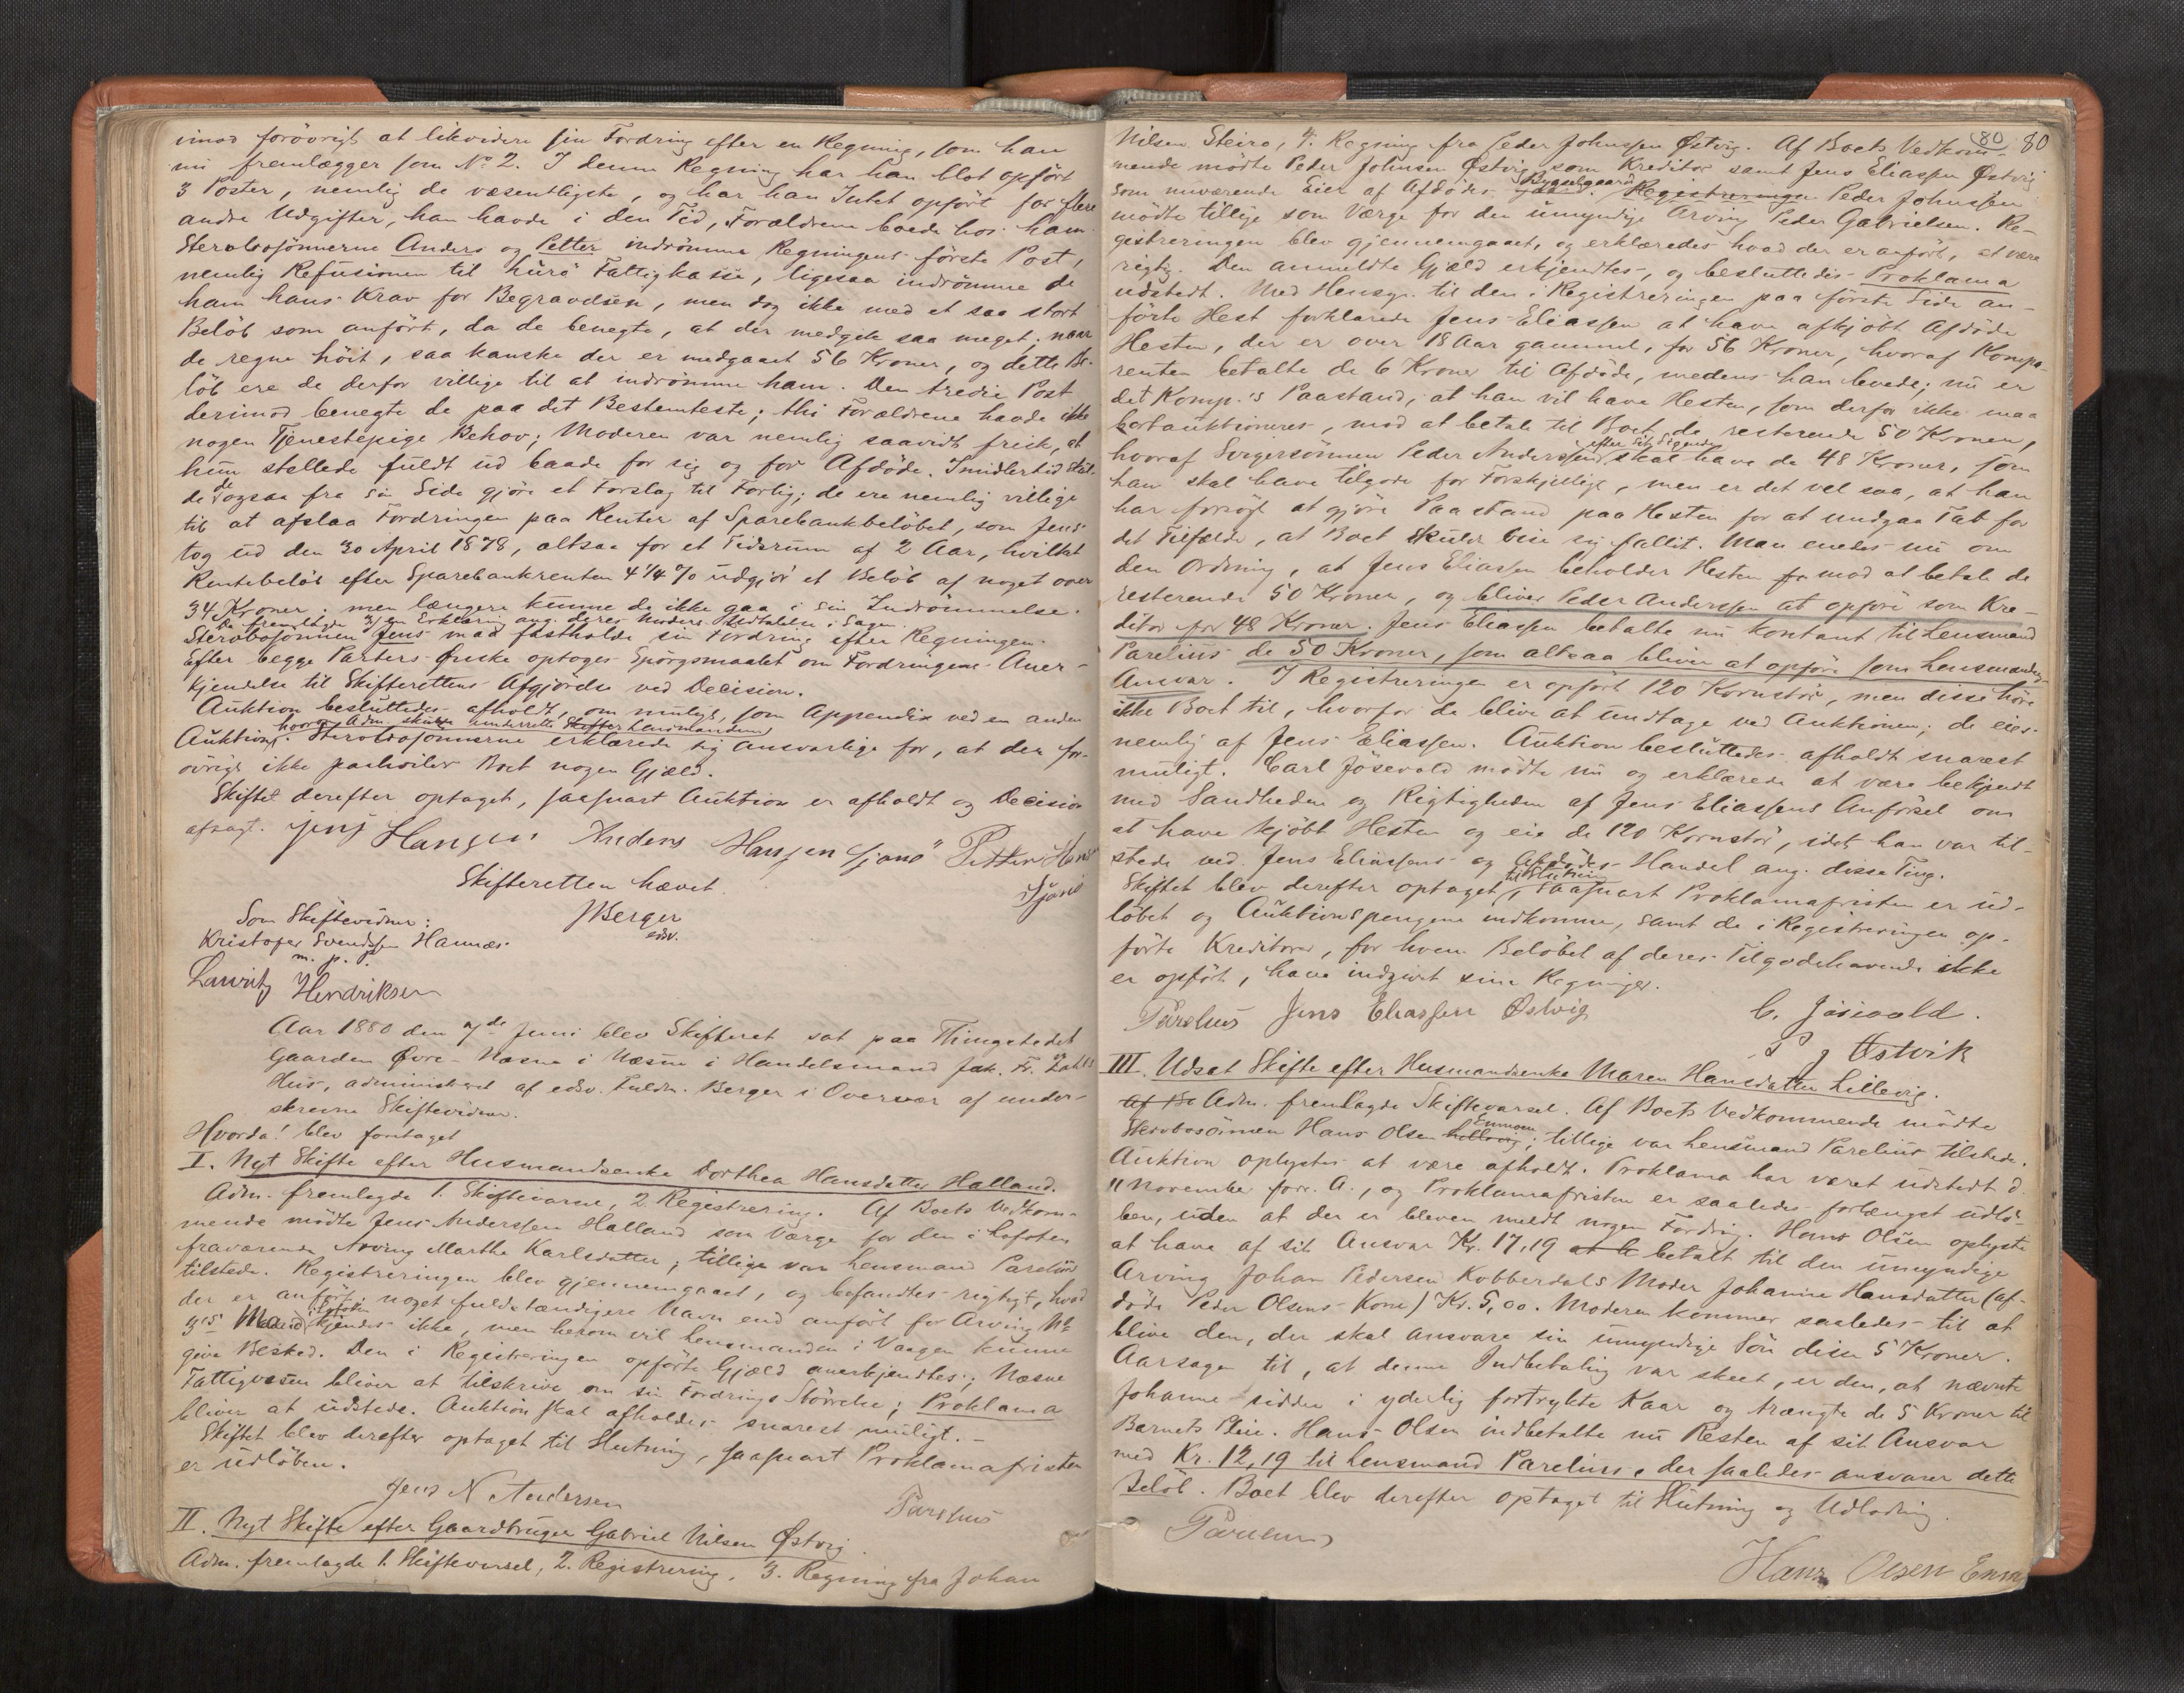 imod forövrigt at likvidere sin Fordring efter en Regning, som han
nu fremlægger som No 2. I denne Regning har han blot opfört
3 Poster, nemlig de væsentligste, og har han Intet opfört for flere
andre Udgifter, han havde i den Tid, Forældrene boede hos ham.
Sterobosönnerne Anders og Petter indrömme Regningens förste Post,
nemlig Refusionen til Lurö Fattigkasse, ligesaa indrömme de
ham hans Krav for Begravelsen, men dog ikke med et saa stort
Belöb som anfört, da de benegte, at der medgik saa meget; naar
de regne höit, saa kanske der er medgaaet 56 Kroner, og dette Be-
löb ere de derfor villige til at indrömme ham. Den tredie Post
derimod benegte de paa det Bestemteste; thi Forældrene havde ikke
nogen Tjenestepige Behov; Moderen var nemlig saavidt frisk, at
hun stellede fuldt ud baade for sig og for Afdöde. Imidlertid
de ogsaa fra sin Side gjöre et Forslag til Forlig; de ere nemlig villige
til at afslaa Fordringen paa Renter af Sparebankbelöbet, som Jens
tog ud den 30 April 1878, altsaa for et Tidsrum af 2 Aar, hvilket
Rentebelöb efter Sparebankrenten 4 1/4 % udgjör et Belöb af noget over
34 Kroner; men længere kunne de ikke gaa i sin Indrömmelse.
De fremlagde 3/ en Erklæring ang. deres Moders Udtalelse i Sagen
Sterobosönnen Jens maa fastholde sin Fordring efter Regningen.
Efter begge Parters Önske optoges Spörgsmaalet om Fordringens Aner-
kjendelse til Skifterettens Afgjörelse ved Decision.
Auktion besluttedes afholdt, om muligt, som Appendix ved en anden
hvorom Adm. skulde underrette Lensmanden
Auktion. Sterobosönnerne erklærede sig ansvarlige for, at der for-
övrigt ikke paahviler Boet nogen Gjæld.
Skiftet derefter optaget, saasnart Auktion er afholdt og Decision
afsagt. Jens Hansen Anders Hansen Sjonö Petter Hans
Sjonö
Skifteretten hævet.
JBerger
edsv.
Som Skiftevidner:
Kristofer Svendsen Hannæs.
m. p. P.
Lauritz Hendriksen
Aar 1880 den 7de Juni blev Skifteret sat paa Thingstedet
Gaarden Övre-Næsne i Næsne i Handelsmand Jak. Fr. Zahls
Hus, administreret af edsv. Fuldm. Berger i Overvær af under-
skrevne Skiftevidner.
Hvorda! blev foretaget
I. Nyt Skifte efter Husmandsenke Dorthea Hansdatter Halland.
Adm. fremlagde 1. Skiftevarsel, 2 Registrering. Af Boets Vedkom-
mende mödte Jens Anderssen Halland som Værge for den i Lofoten
fraværende Arving Marthe Karlsdatter; tillige var Lensmand Parelius
tilstede. Registreringen blev gjennemgaaet, og befandtes rigtigt, hvad
der er anfört; noget fuldstændigere Navn end anfört for Arving No
3's Mand i Lofoten kjendes ikke, men herom vil Lensmanden i Vaagen kunne
give Besked. Den i Registreringen opförte Gjæld anerkjendtes; Næsne
Fattigvæsen bliver at tilskrive om sin Fordrings Störrelse; Proklama
bliver at udstede. Auktion skal afholdes snarest muligt.-
Skiftet blev derefter optaget til Slutning, saasnart Proklamafristen
er udlöben.
Jens N Andersen
Parelius
II. Nyt Skifte efter Gaardbruger Gabriel Nilsen Østvig.
Adm. fremlagde 1. Skiftevarsel, 2. Registrering, 3. Regning fra Johan
80 80
Nilsen Steiro, 4. Regning fra Peder Johnsen Østvig. Af Boets Vedkom-
mende mödte Peder Johnsen Østvig som Kreditor samt Jens Eliassen Østvig
som nuværende Eier af Afdödes Bygselgaard. Registreringen Peder Johnsen
mödte tillige som Værge for den umyndige Arving Peder Gabrielsen. Re-
gistreringen blev gjennemgaaet, og erklæredes hvad der er anfört, at være
rigtig. Den anmeldte Gjæld erkjendtes, og besluttedes Proklama
udstedt. Med Hensyn til den i Registreringen paa förste Side an-
förte Hest forklarede Jens Eliassen at have afkjöbt Afdöde
Hesten, der er over 18 Aar gammel, for 56 Kroner, hvoraf Kompa-
renten betalte de 6 Kroner til Afdöde, medens han levede; nu er
det Komp.'s Paastand, at han vil have Hesten, som derfor ikke maa
bortauktioneres, mod at betale til Boet de resterende 50 Kroner,
hvoraf Svigersönnen Peder Anderssen efter Sit Sigende skal have de 48 Kroner, som
han skal have tilgode for Forskjellige, men er det vel saa, at han
har forsögt at gjöre Paastand paa Hesten for at undgaa Tab for
det Tilfælde, at Boet skulde vise sig fallit. Man enedes nu om
den Ordning, at Jens Eliassen beholder Hesten fo mod at betale de
resterende 50 Kroner, og bliver Peder Anderssen at opföre som Kre-
ditor for 48 Kroner. Jens Eliassen betalte nu kontant til Lensmand
Parelius de 50 Kroner, som altsaa bliver at opföre som Lensmandens
Ansvar. I Registreringen er opfört 120 Kornstör, men disse höre
ikke Boet til, hvorfor de blive at undtage ved Auktionen; de eies
nemlig af Jens Eliassen. Auktion besluttedes afholdt snarest
muligt. Carl Jösevold mödte nu og erklærede at være bekjendt
med Sandheden og Rigtigheden af Jens Eliassens Anförsel om
at have kjöbt Hesten og eie de 120 Kornstör, idet han var til-
stede ved Jens Eliassens og Afdödes Handel ang. disse Ting.
Skiftet blev derefter optaget til Slutning, saasnart Proklamafristen er ud-
löbet og Auktionspengene indkomne, samt de i Registreringen op-
förte Kreditorer, for hvem Belöbet af deres Tilgodehavende ikke
er opfört, have indgivet sine Regninger.
Parelius Jens Eliassen Østvig
C. Jösevold.
P J Østvik
III. Udsat Skifte efter Husmandsenke Maren Hansdatter Lillevig.
Af Bo Adm. fremlagde Skiftevarsel. Af Boets Vedkommende mödte
Sterbosönnen Hans Olsen Enmoen; tillige var Lensmand Parelius tilstede.
Auktion oplystes at være afholdt. Proklama har været udstedt d.
11 November forr. A., og Proklamafristen er saaledes forlængst udlö-
ben, uden at der er bleven meldt nogen Fordring. Hans Olsen oplyste
at have af sit Ansvar Kr. 17,19 at be betalt til den umyndige
Arving Johan Pedersen Kobberdals Moder Johanne Hansdatter (af-
döde Peder Olsens Kone) Kr. 5,00. Moderen kommer saaledes til at
blive den, der skal ansvare sin umyndige Sön disse 5 Kroner.
Aarsagen til, at denne Indbetaling var skeet, er den, at nævnte
Johanne sidder i yderlig fortrykte Kaar og trængte de 5 Kroner til
Barnets Pleie. Hans Olsen indbetalte nu Resten af sit Ansvar
med Kr. 12,19 til Lensmand Parelius, der saaledes ansvarer dette
Belöb. Boet blev derefter optaget til Slutning og Udlodning.
Parelius
Hans Olsen Enm